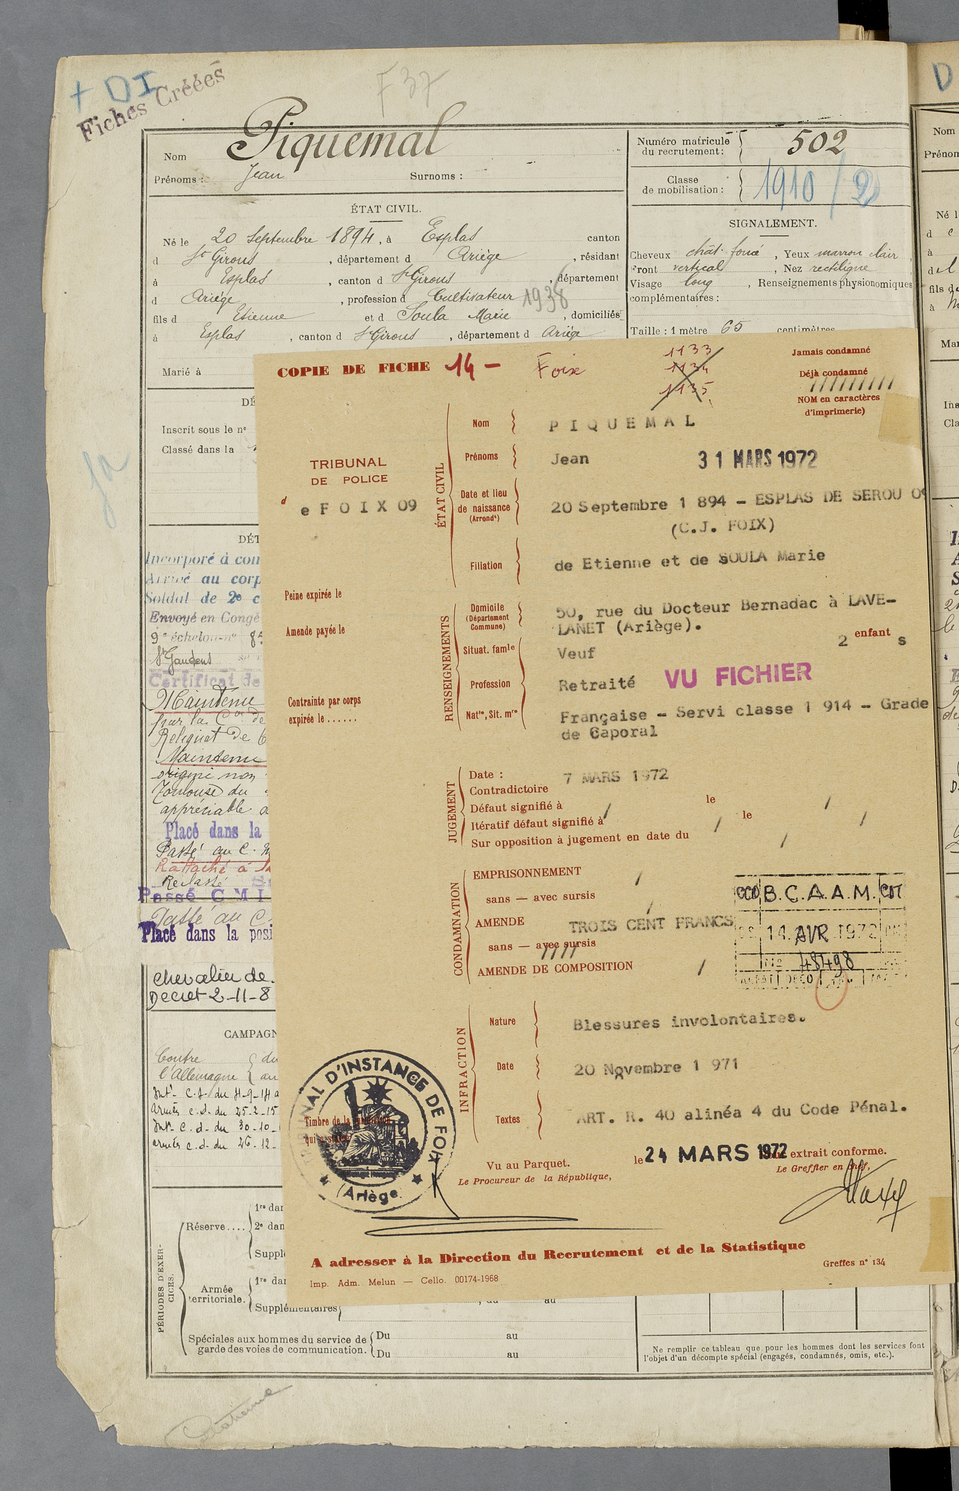 + DI
Fiches Créées
F 37
Nom Piquemal
Prénoms : Jean Surnoms :
Numéro matricule du recrutement : 502
Classe de mobilisation : 1910 / 2
ÉTAT CIVIL.
Né le 20 Septembre 1894, à Esplas canton
d St Girons, département d Ariège, résidant
à Esplas, canton d St Girons, département
d Ariège, profession d Cultivateur 1938
fils d Etienne et d Soula Marie, domiciliés
à Esplas, canton d St Girons, département d Ariège
Marié à
SIGNALEMENT.
Cheveux chât. foncé, Yeux marron clair,
Front vertical, Nez rectiligne
Visage long, Renseignements physionomiques
complémentaires :
Taille : 1 mètre 65 centimètres
Inscrit sous le n°
Classé dans la
Incorporé à com
Arrivé au corp
Soldat de 2e c
Envoyé en Congé
9e échelon n° 85
St Gaudens
Certificat de
Maintenu
par la Con de
Maintenu
origine non
Toulouse du
appréciable a
Placé dans la
Passé au C. M
Rattaché à
Reclassé
Passé C M I
Passé au C.
Placé dans la posi
Chevalier de
Decret 2-11-8
CAMPAGN
Contre du
l'Allemagne au
Intr C. d. du 4-9-14 a
armées c. d. du 25-2-15
Intr C. d. du 30-10-
armées c. d. du 26-12-
PÉRIODES D'EXERCICES.
Réserve....
1re dan
2e dan
Supplé
Armée territoriale.
1re dan
Supplémentaires
, au au
Spéciales aux hommes du service de garde des voies de communication.
Du au
Du au
Ne remplir ce tableau que pour les hommes dont les services font
l'objet d'un décompte spécial (engagés, condamnés, omis, etc.).
COPIE DE FICHE 14 - Foix
1133
1134
1135
Jamais condamné
Déjà condamné
NOM en caractères
d'imprimerie)
TRIBUNAL
DE POLICE
d e F O I X 09
Peine expirée le
Amende payée le
Contrainte par corps
expirée le ......
ÉTAT CIVIL
Nom P I Q U E M A L
Prénoms Jean 31 MARS 1972
Date et lieu de naissance (Arrondt) 20 Septembre 1 894 - ESPLAS DE SEROU 09
(C.J. FOIX)
Filiation de Etienne et de SOULA Marie
RENSEIGNEMENTS
Domicile (Département Commune) 50, rue du Docteur Bernadac à LAVE-
LANET (Ariège).
Situat. famle Veuf 2 enfant s
Profession Retraité VU FICHIER
Natté, Sit. mre Française - Servi classe 1 914 - Grade
de Caporal
JUGEMENT
Date : 7 MARS 1972
Contradictoire
Défaut signifié à / le /
Itératif défaut signifié à / le /
Sur opposition à jugement en date du /
CONDAMNATION
EMPRISONNEMENT /
sans — avec sursis /
AMENDE TROIS CENT FRANCS
sans — avec sursis
AMENDE DE COMPOSITION /
B.C.A.A.M.
14 AVR 1972
48498
INFRACTION
Nature Blessures involontaires.
Date 20 Novembre 1 971
Textes ART. R. 40 alinéa 4 du Code Pénal.
TRIBUNAL D'INSTANCE DE FOIX
(Ariège)
Vu au Parquet.
Le Procureur de la République,
le 24 MARS 1972 extrait conforme.
Le Greffier en chef,
A adresser à la Direction du Recrutement et de la Statistique
Imp. Adm. Melun — Cello. 00174-1968
Greffes n° 134